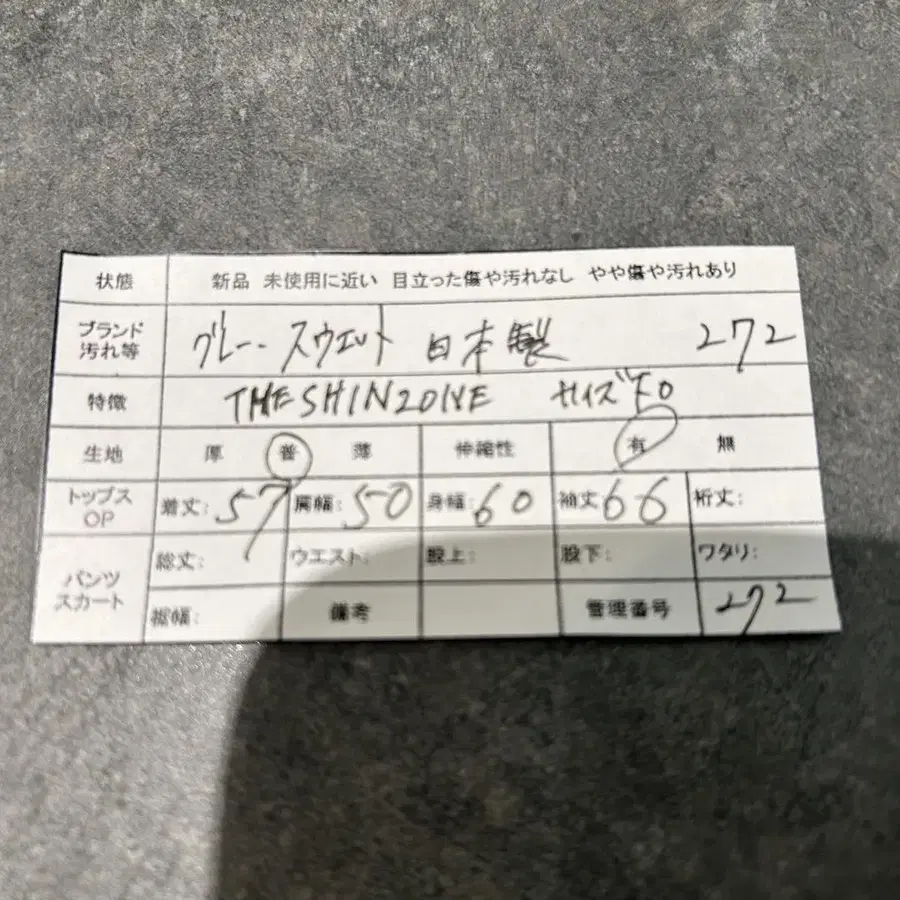 状態 新品 未使用に近い 目立った傷や汚れなし やや傷や汚れあり
ブランド 汚れ等 グレー.スウェット 日本製 272
特徴 THE SHINZONE サイズFO
生地 厚 普 薄 伸縮性 有 無
トップス OP 着丈:57 肩幅:50 身幅:60 袖丈66 裄丈:
パンツ スカート 総丈: ウエスト: 股上: 股下: ワタリ:
裾幅: 備考 管理番号 272